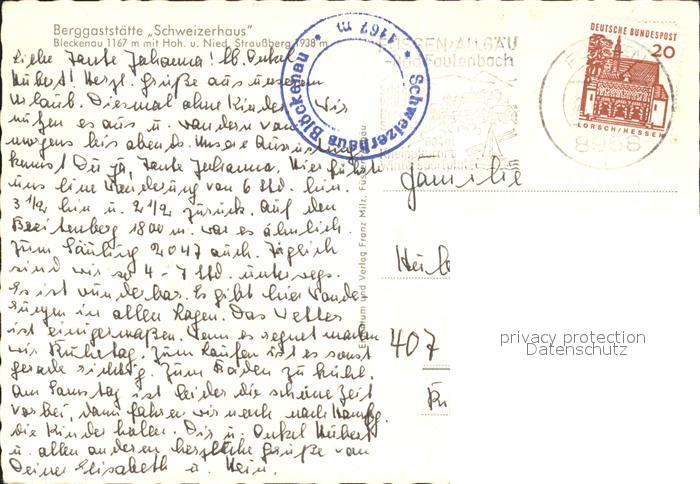 Berggaststätte „Schweizerhaus"
Bleckenau 1167 m mit Hoh. u. Nied. Straußberg 1938 m
Liebe Tante Johanna! Lb. Onkel
Hubert! Herzl. Grüße aus unserem
Urlaub. Diesmal ohne Kinder. Wir
nützen es aus u. wandern von
morgens bis abends. Unsere Ausrüstung
kennst Du ja, Tante Johanna. Hier führte
uns eine Wanderung von 6 Std. hin.
3 1/2 hin u. 2 1/2 zurück. Auf den
Breitenberg 1800 m. war es ähnlich.
Zum Säuling 2047 auch. Täglich
sind wir so 4 - 7 Std. unterwegs.
Es ist wunderbar. Es gibt hier Wande
rungen in allen Lagen. Das Wetter
ist einigermaßen. Wenn es regnet machen
wir Ruhetag. Zum Laufen ist es sonst
gerade richtig. Zum Baden zu kühl.
Am Samstag ist leider die schöne Zeit
vorbei, dann fahren wir nach
die Kinder holen. Dir u. Onkel Hubert
u. allen anderen herzliche Grüße von
Deiner Elisabeth u. Hein.
Schweizerhaus Blöckenau
* 1167 m *
FÜSSEN/ALLGÄU
Bad Faulenbach
DEUTSCHE BUNDESPOST
20
LORSCH/HESSEN
8958
und Verlag Franz Milz, Füssen
Familie
407
privacy protection
Datenschutz